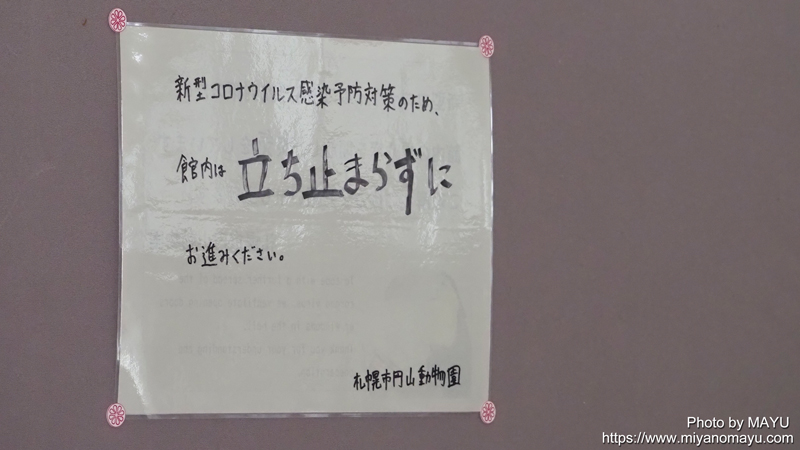 新型コロナウイルス感染予防対策のため、
館内は 立ち止まらずに
お進みください。
札幌市円山動物園
Photo by MAYU
https://www.miyanomayu.com/